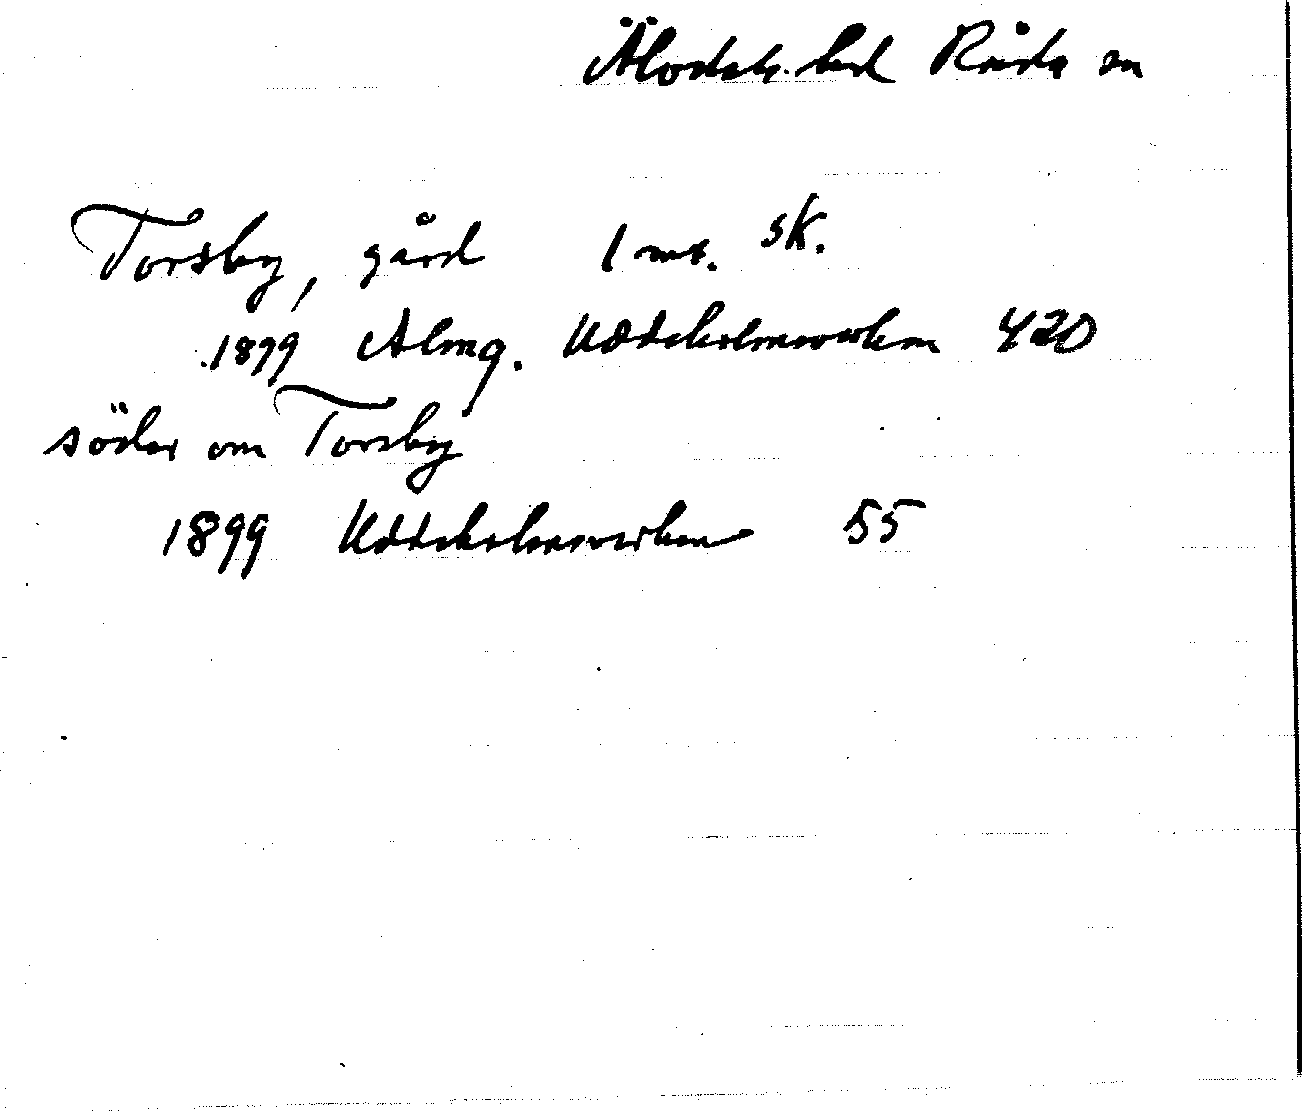 Älvdals hd Råda sn
Torsby, gård 1 mt. sk.
1899 Almq. Uddeholmsverken 420
söder om Torsby
1899 Uddeholmsverken 55